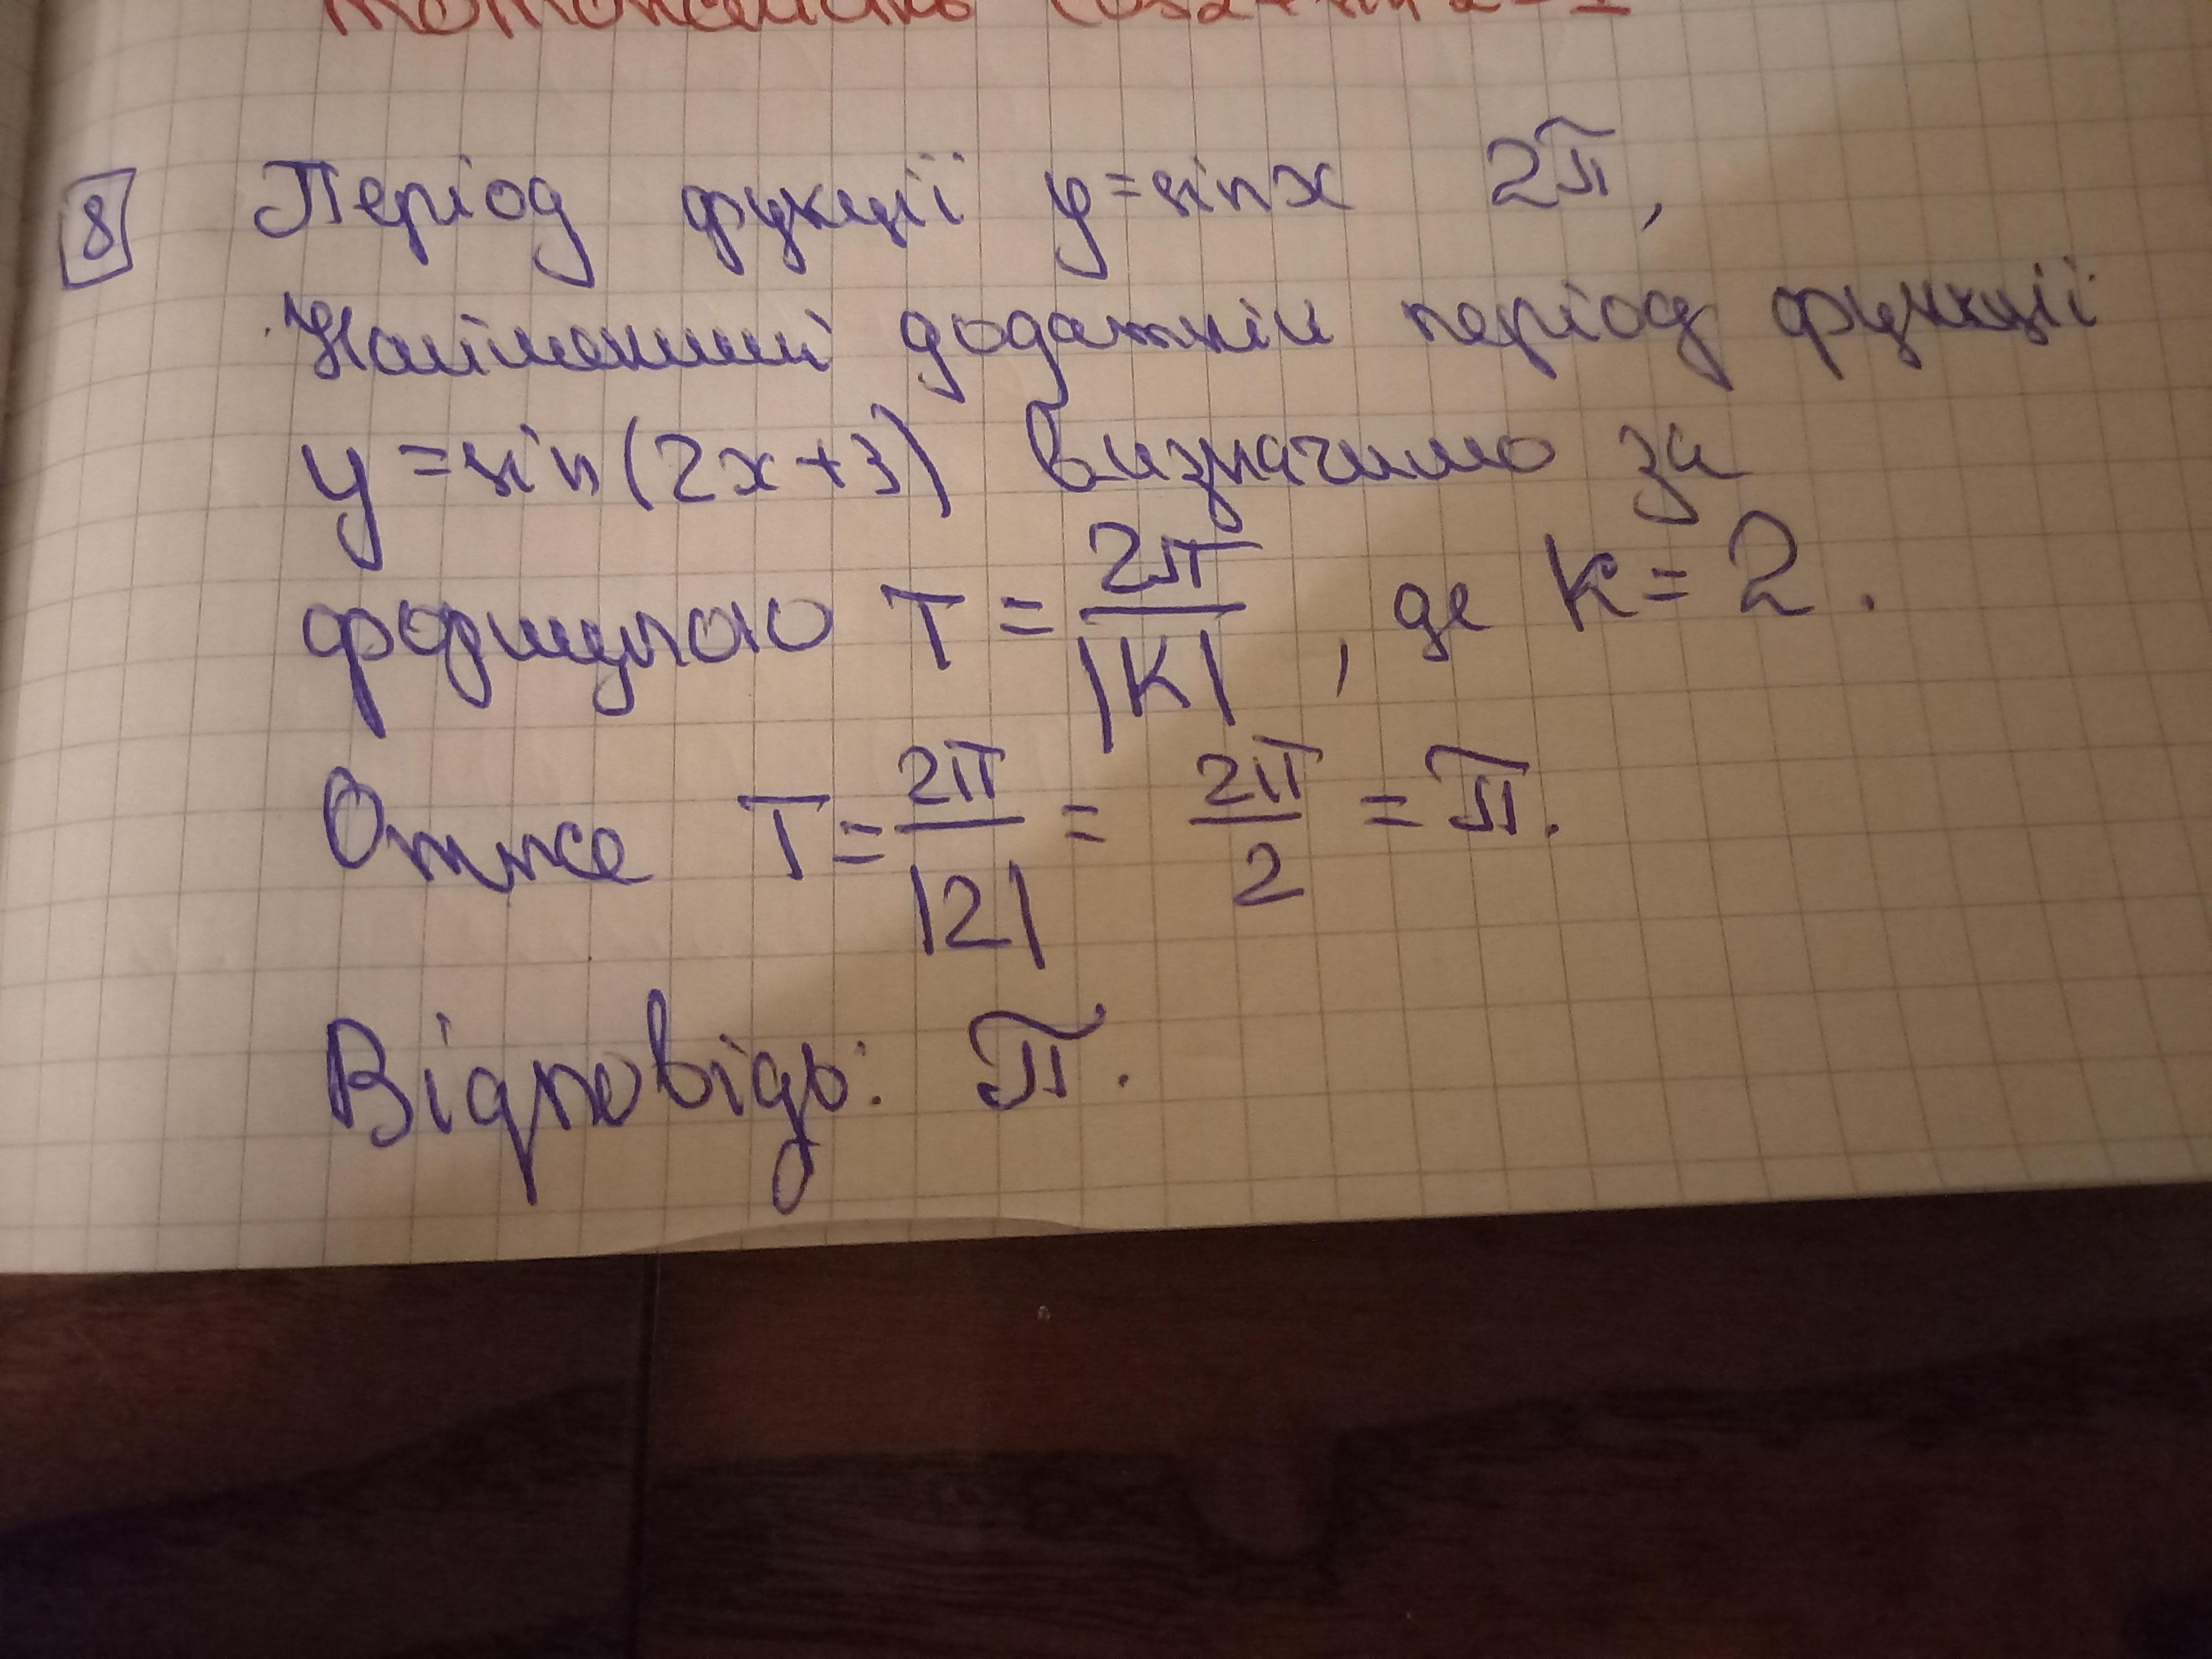 8 Період фукції y=sinx 2π,
Найменший додатній період функції
y=sin(2x+3) визначимо за
формулою T = 2π/|K|, де K = 2.
Отже T = 2π/|2| = 2π/2 = π.
Відповідь: π.